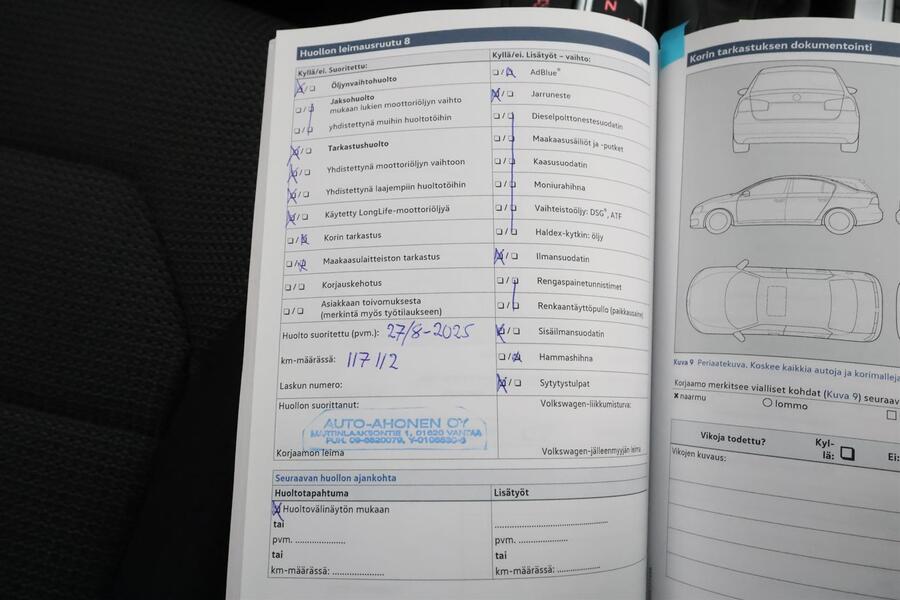 N
Huollon leimausruutu 8
Kyllä/ei. Suoritettu:
Öljynvaihtohuolto
Jaksohuolto
mukaan lukien moottoriöljyn vaihto
yhdistettynä muihin huoltotöihin
Tarkastushuolto
Yhdistettynä moottoriöljyn vaihtoon
Yhdistettynä laajempiin huoltotöihin
Käytetty LongLife-moottoriöljyä
Korin tarkastus
Maakaasulaitteiston tarkastus
Korjauskehotus
Asiakkaan toivomuksesta
(merkintä myös työtilaukseen)
Kyllä/ei. Lisätyöt – vaihto:
AdBlue®
Jarruneste
Dieselpolttonestesuodatin
Maakaasusäiliöt ja -putket
Kaasusuodatin
Moniurahihna
Vaihteistoöljy: DSG®, ATF
Haldex-kytkin: öljy
Ilmansuodatin
Rengaspainetunnistimet
Renkaantäyttöpullo (paikkausaine)
Sisäilmansuodatin
Hammashihna
Sytytystulpat
Huolto suoritettu (pvm.): 27/8-2025
km-määrässä: 117 112
Laskun numero:
Huollon suorittanut:
Volkswagen-liikkumisturva:
AUTO-AHONEN OY
MARTINLAAKSONTIE 1, 01620 VANTAA
Korjaamon leima
Volkswagen-jälleenmyyjän leima
Seuraavan huollon ajankohta
Huoltotapahtuma
Huoltovälinäytön mukaan
tai
pvm. ....................
tai
km-määrässä: ....................
Lisätyöt
pvm. ....................
tai
km-määrässä: ................
Korin tarkastuksen dokumentointi
Kuva 9 Periaatekuva. Koskee kaikkia autoja ja korimalleja
Korjaamo merkitsee vialliset kohdat (Kuva 9) seuraav
x naarmu
lommo
Vikoja todettu?
Kyl-
lä:
Ei:
Vikojen kuvaus: